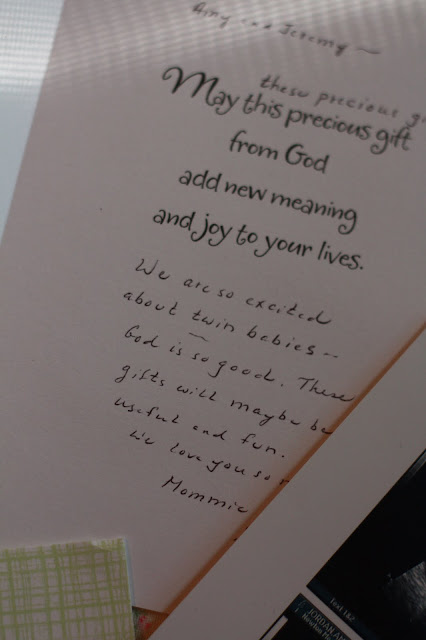 Amy and Jeremy ~
these precious
May this precious gift
from God
add new meaning
and joy to your lives.
We are so excited
about twin babies --
God is so good. These
gifts will maybe be
useful and fun.
We love you so
Mommie
Text 1&2
JORDAN